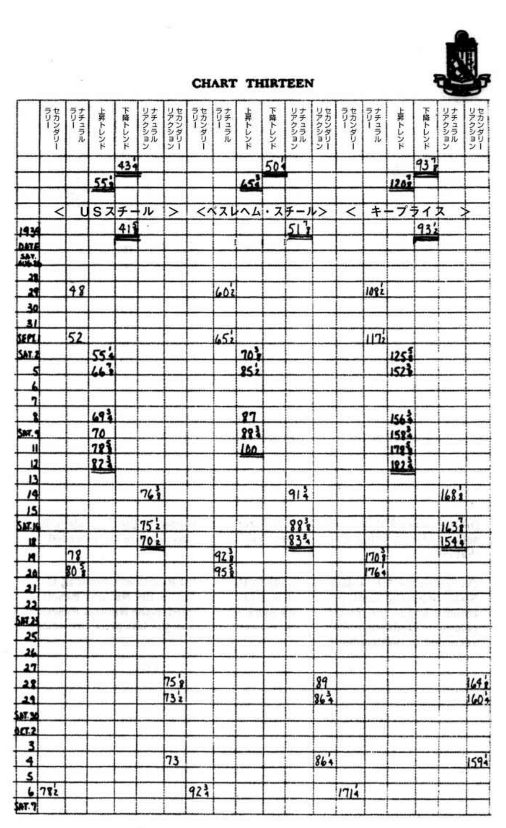 CHART THIRTEEN
セカンダリーラリー ナチュラルラリー 上昇トレンド 下降トレンド ナチュラルリアクション セカンダリーリアクション セカンダリーラリー ナチュラルラリー 上昇トレンド 下降トレンド ナチュラルリアクション セカンダリーリアクション セカンダリーラリー ナチュラルラリー 上昇トレンド 下降トレンド ナチュラルリアクション セカンダリーリアクション
43¼ 50¼ 93⅞
55⅛ 65¾ 120⅞
< USスチール > <ベスレヘム・スチール> < キープライス >
1939 41⅝ 51⅞ 93½
DATE
SAT.
28
29 48 60½ 108½
30
31
SEPT.1 52 65½ 117½
SAT.2 55¼ 70⅜ 125⅝
5 66⅞ 85½ 152⅜
6
7
8 69¾ 87 156¾
SAT.9 70 88¾ 158¾
11 78⅝ 100 178⅝
12 82¾ 182¾
13
14 76⅜ 91¾ 168⅛
15
SAT.16 75½ 88⅜ 163⅞
18 70½ 83¾ 154¼
19 78 92⅜ 170⅜
20 80⅝ 95⅝ 176¼
21
22
SAT.23
25
26
27
28 75⅛ 89 164⅛
29 73½ 86¾ 160¼
SAT.30
OCT.2
3
4 73 86¼ 159¼
5
6 78½ 92¾ 171¼
SAT.7